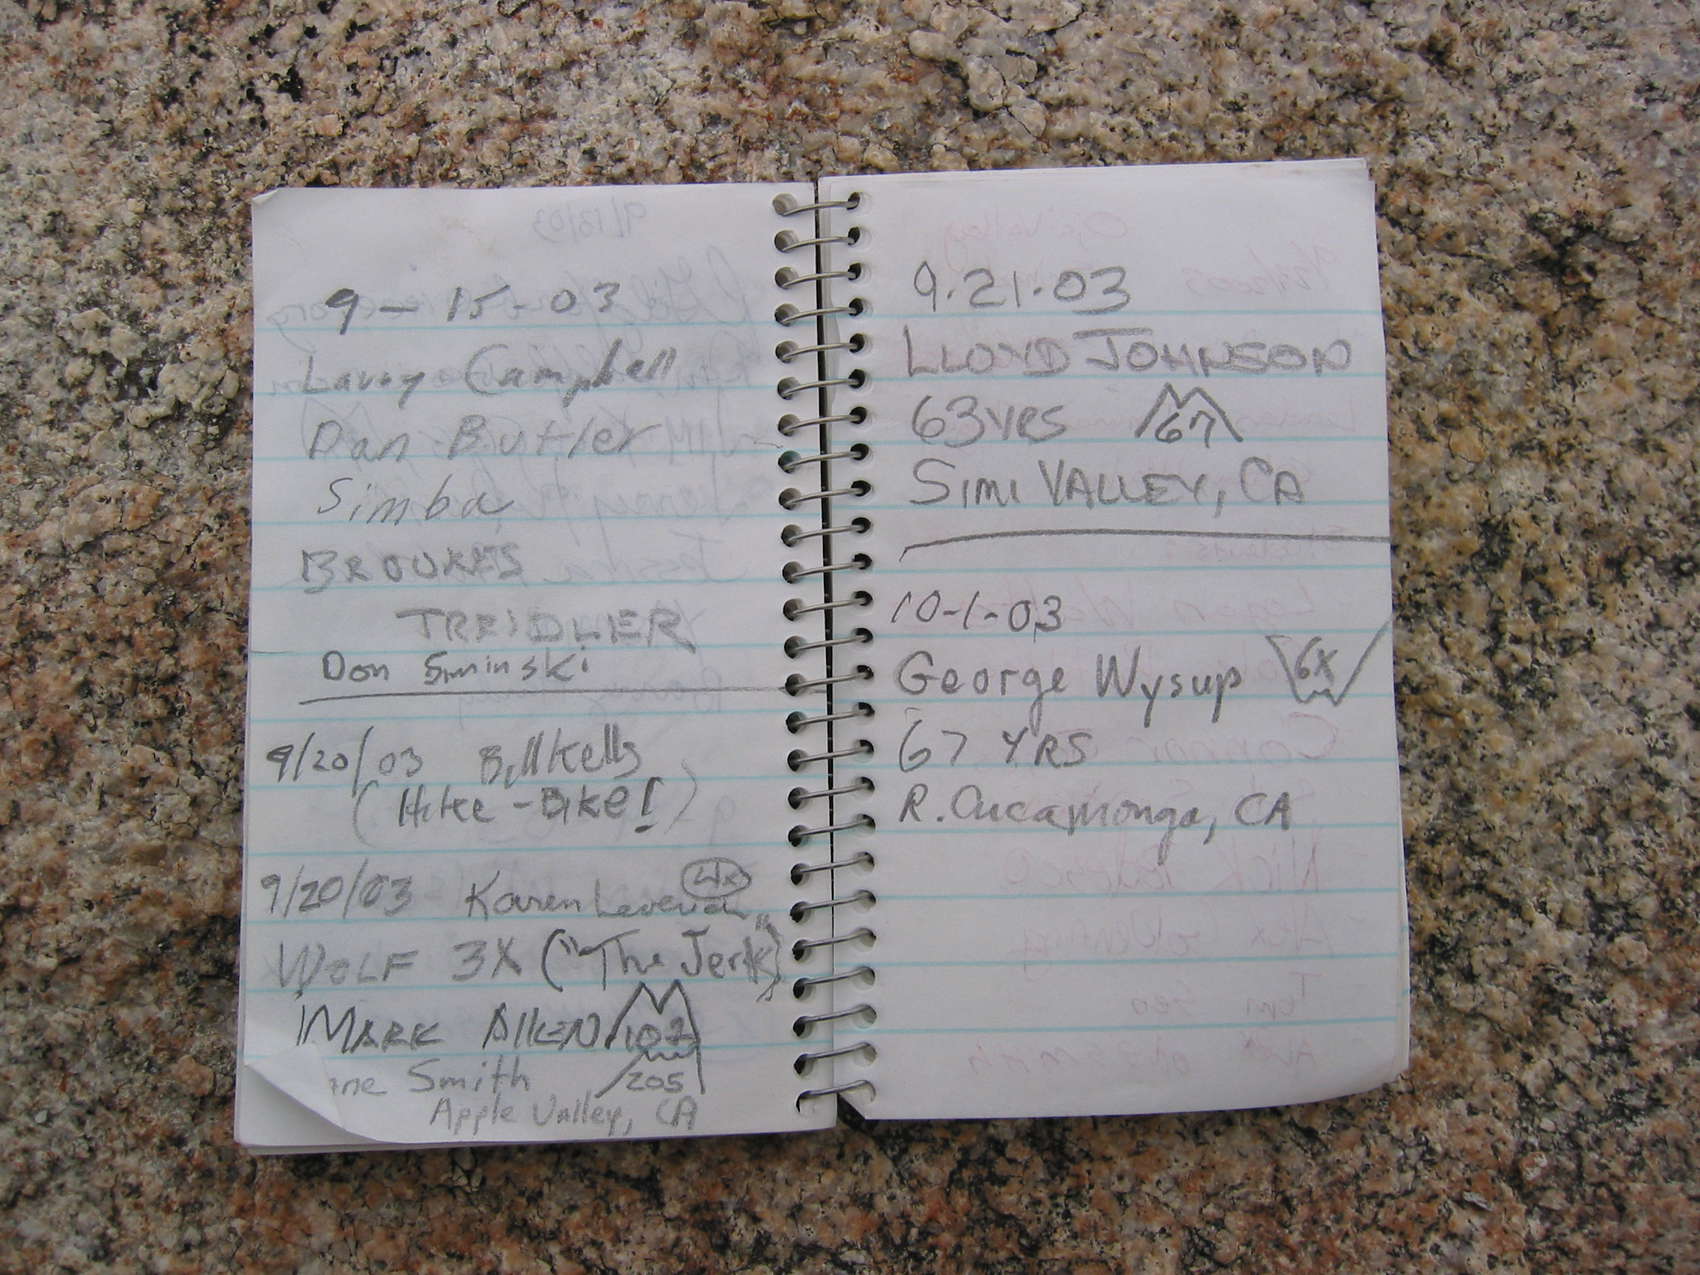 9-15-03
Larry Campbell
Dan Butler
Simba
BROOKES
TREIDLER
Don Siminski
9/20/03 Bill Kelly
(Hike-Bike!)
9/20/03 Karen 4x
WOLF 3X ("The Jerk")
MARK AlKEN 102
Smith 205
Apple Valley, CA
9.21.03
LLOYD JOHNSON
63 YRS 67
SIMI VALLEY, CA
10-1-03
George Wysup 6x
67 YRS
R. Cucamonga, CA